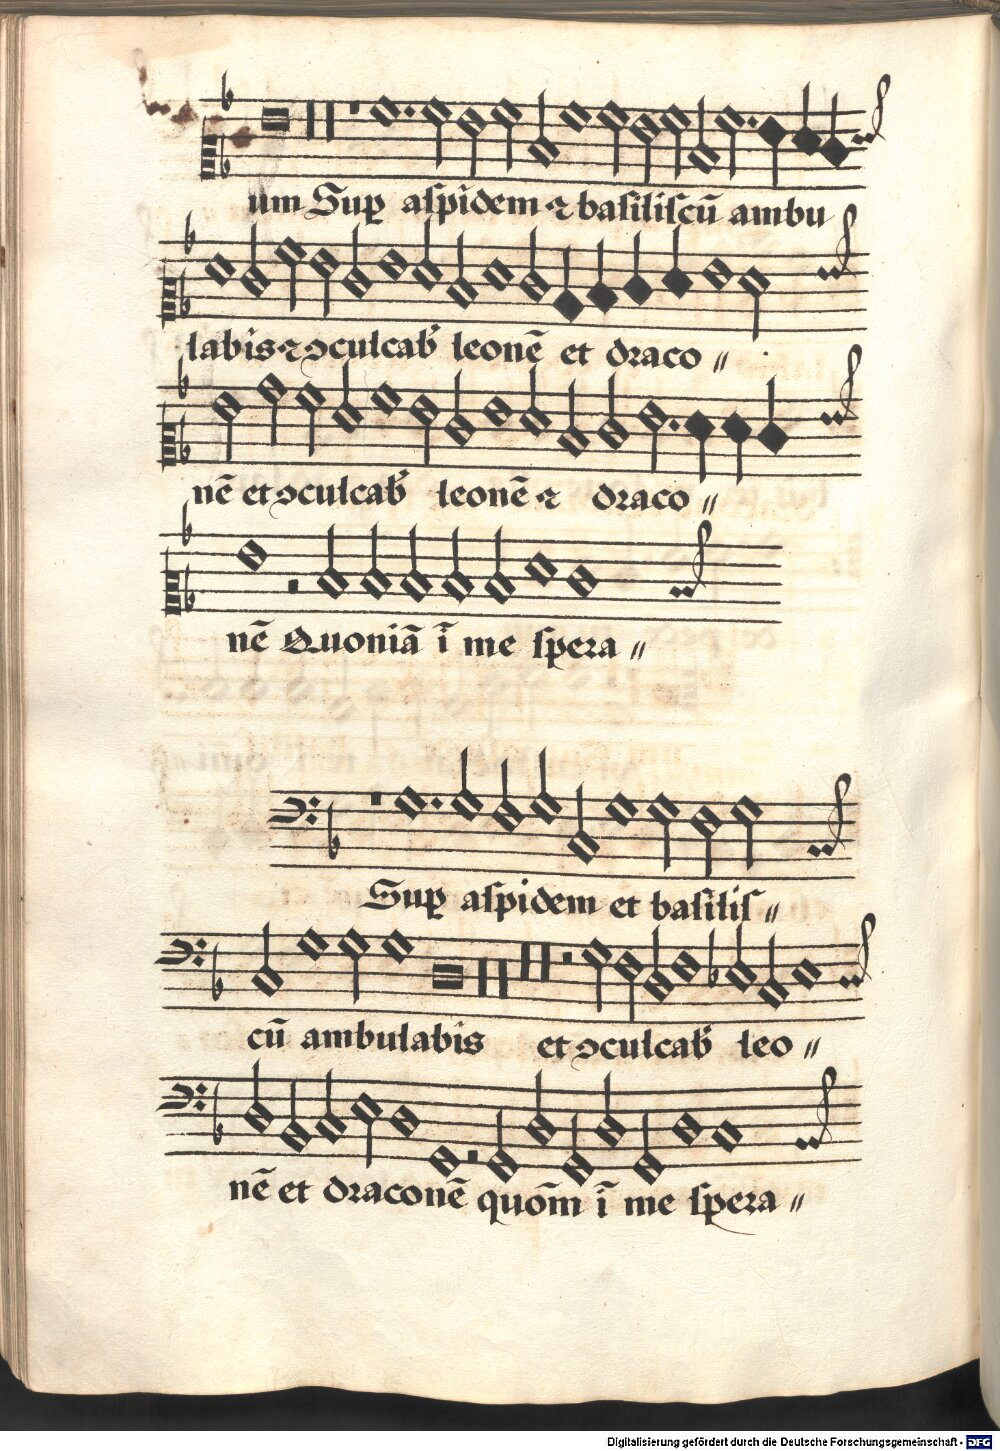 um Suꝑ aſpidem ⁊ baſiliſcū ambu
labis ⁊ ↄculcab̕ leonē et draco〃
nē et ↄculcab̕ leonē ⁊ draco〃
nē Quoniā ī me ſpera〃
Suꝑ aſpidem et baſilis〃
cū ambulabis et ↄculcab̕ leo〃
nē et draconē quōm ī me ſpera〃
Digitalisierung gefördert durch die Deutsche Forschungsgemeinschaft - DFG